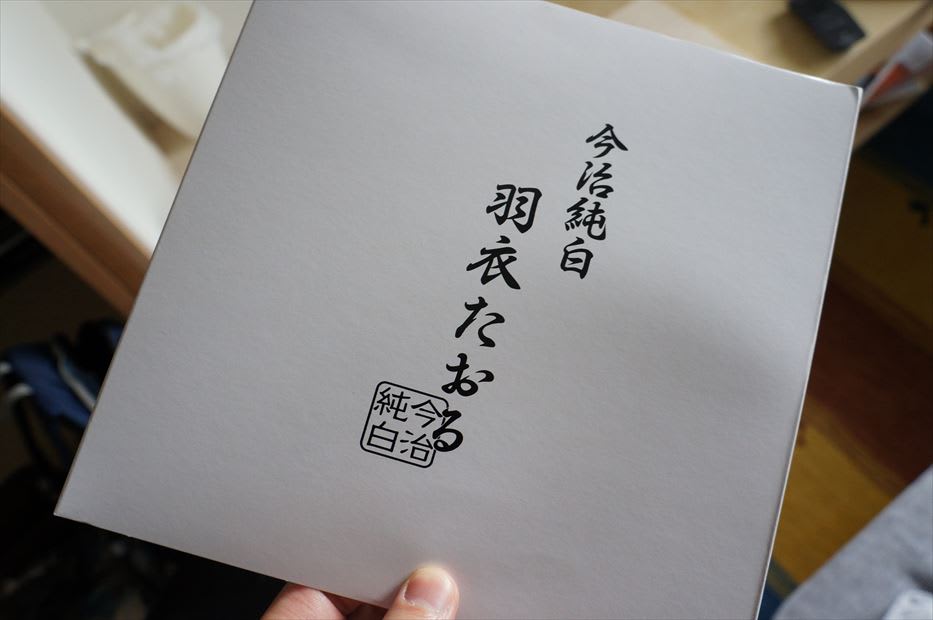 今治純白
羽衣たおる
今治
純白